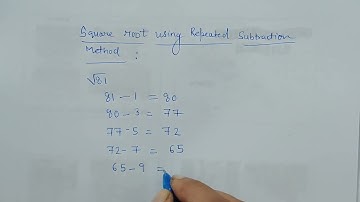 Square root using Repeated Subtraction
Method :
√81
81 - 1 = 80
80 - 3 = 77
77 - 5 = 72
72 - 7 = 65
65 - 9 =